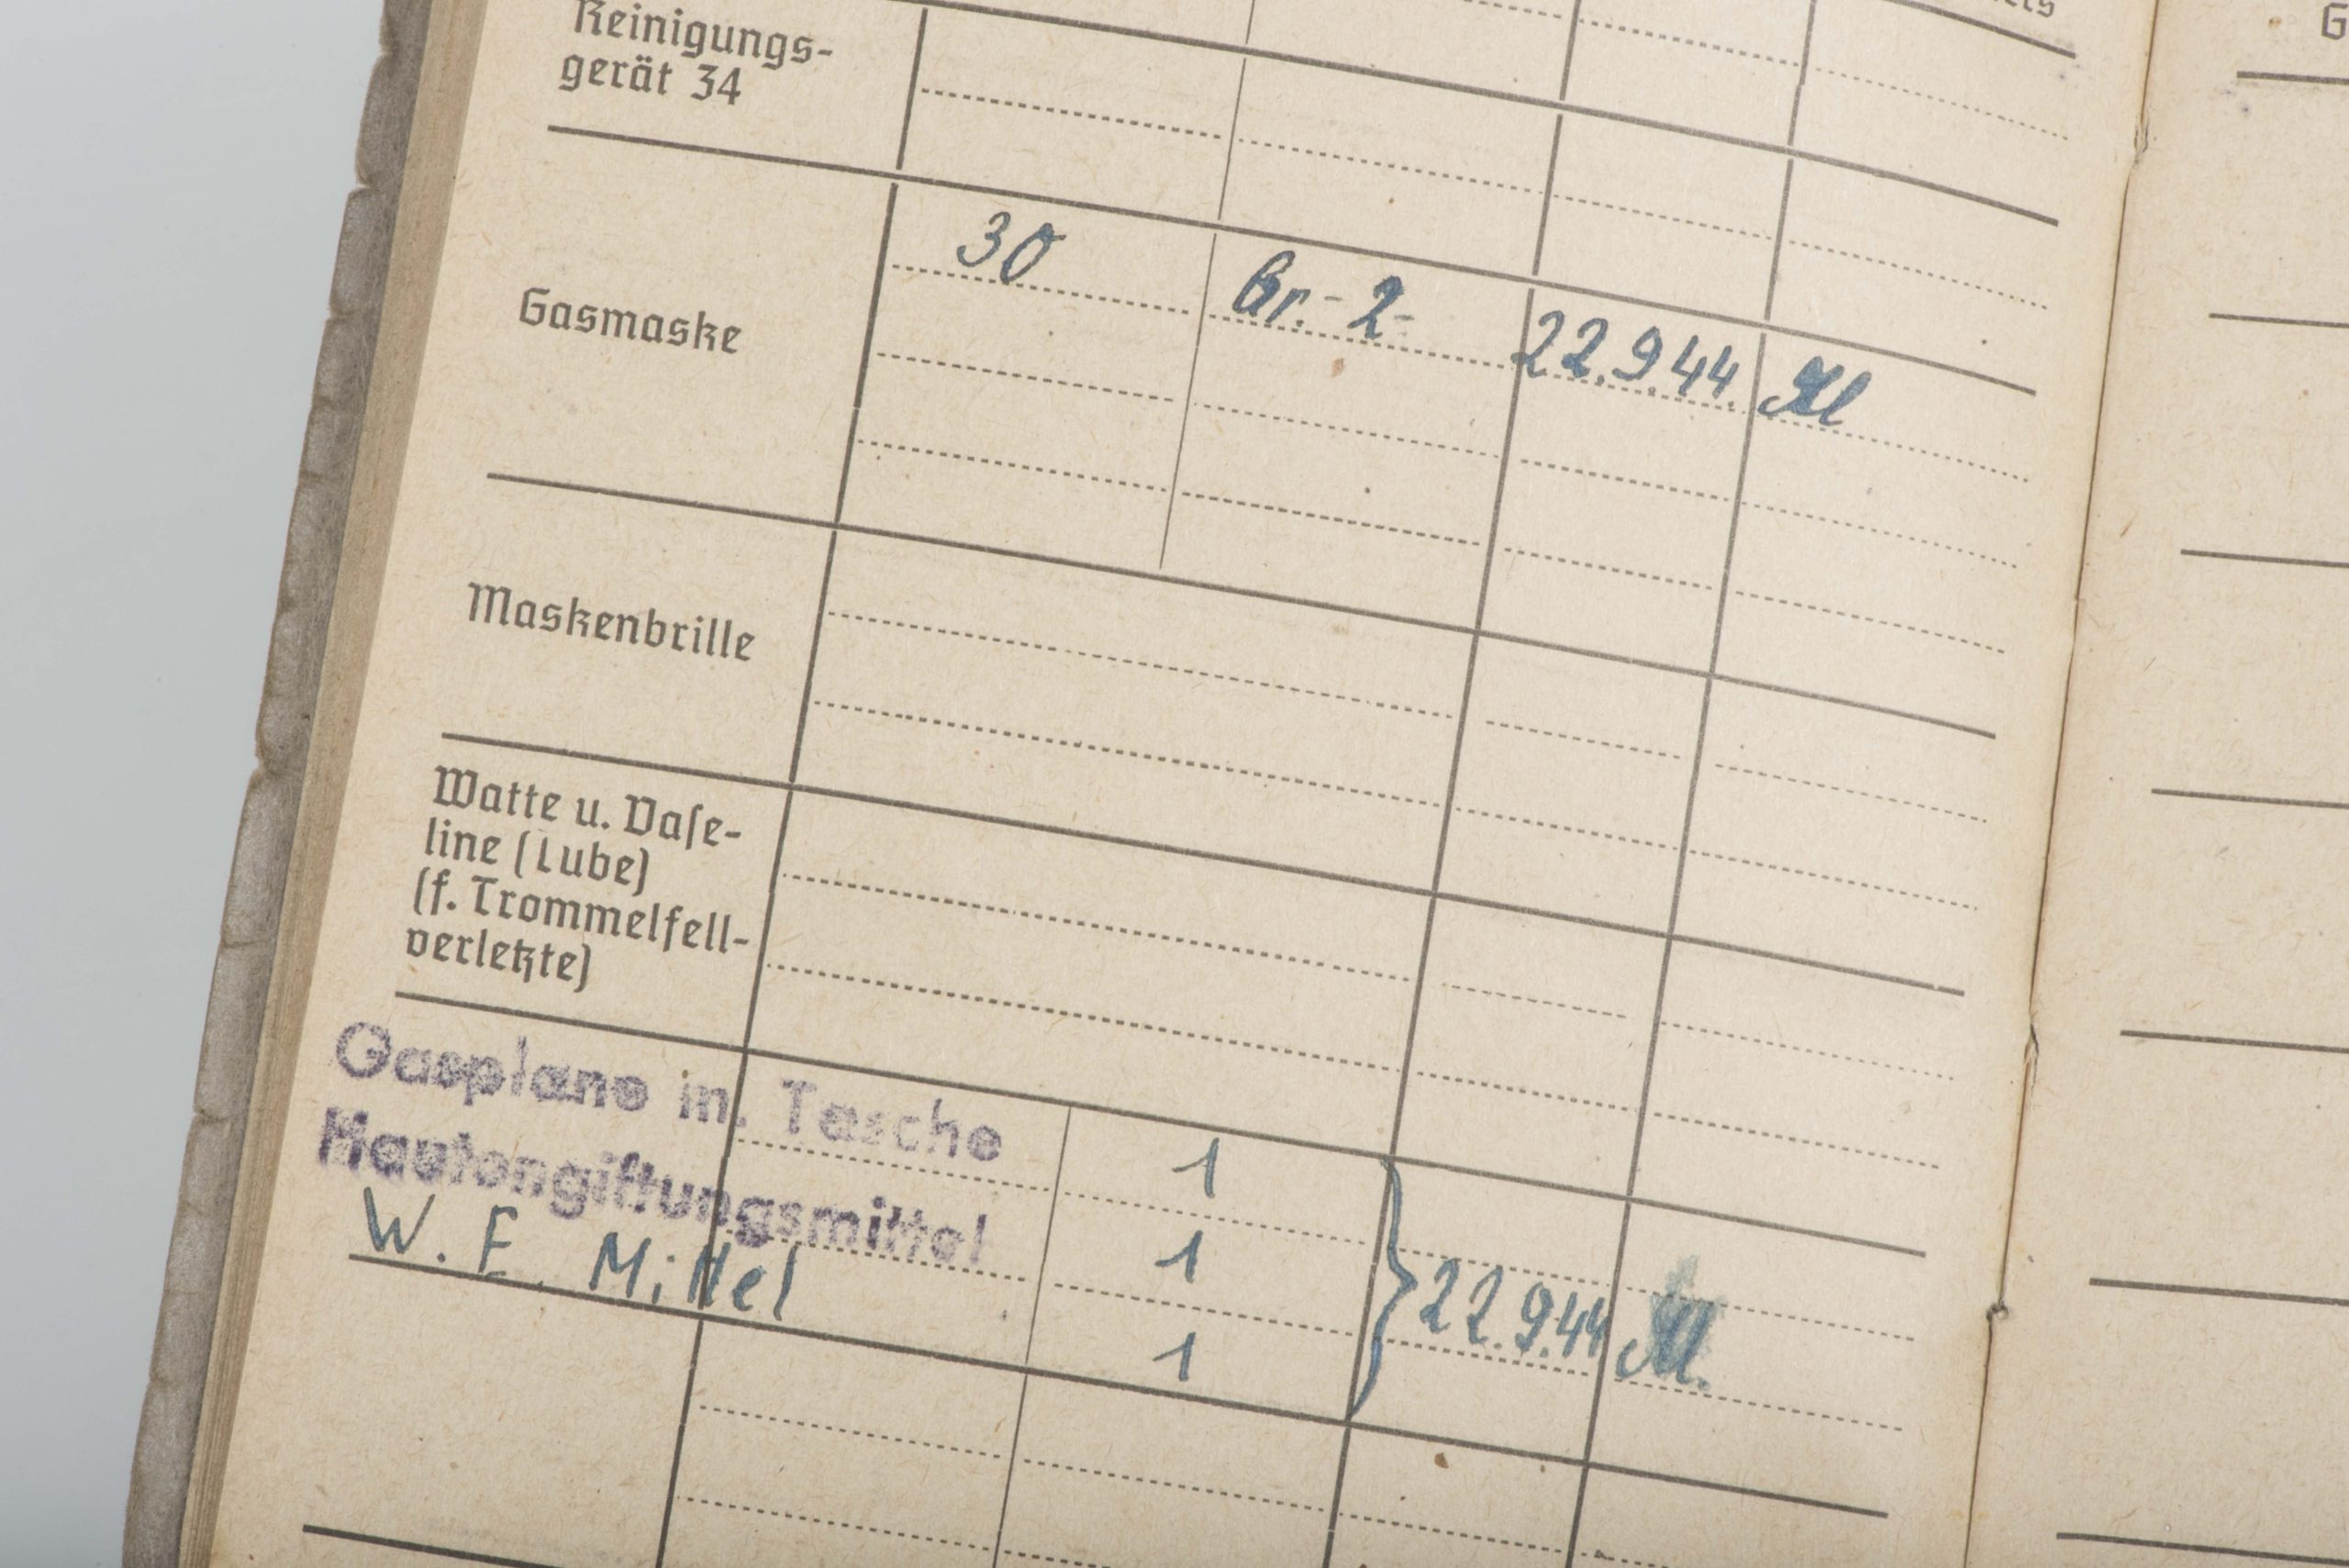 Reinigungs-
gerät 34
Gasmaske
30 Gr. - 2 - 22.9.44.
Maskenbrille
Watte u. Vase-
line (Tube)
(f. Trommelfell-
verletzte)
Gasplane in. Tasche 1
Hautengiftungsmittel 1
W. E. Mittel 1
22.9.44